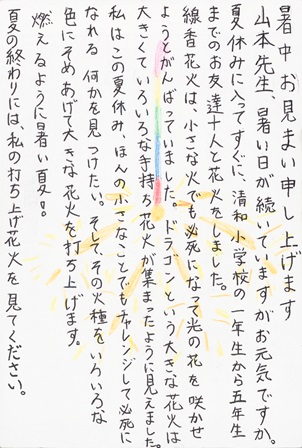 暑中お見まい申し上げます
山本先生、暑い日が続いていますがお元気ですか。
夏休みに入ってすぐに、清和小学校の一年生から五年生
までのお友達十人と花火をしました。
線香花火は、小さな火でも必死になって光の花を咲かせ
ようとがんばっていました。ドラゴンという大きな花火は
大きくていろいろな手持ち花火が集まったように見えました。
私はこの夏休み、ほんの小さなことでもチャレンジして必死に
なれる何かを見つけたい。そしてその火種をいろいろな
色にそめあげて大きな花火を打ち上げます。
燃えるように暑い夏!!
夏の終わりには、私の打ち上げ花火を見てください。